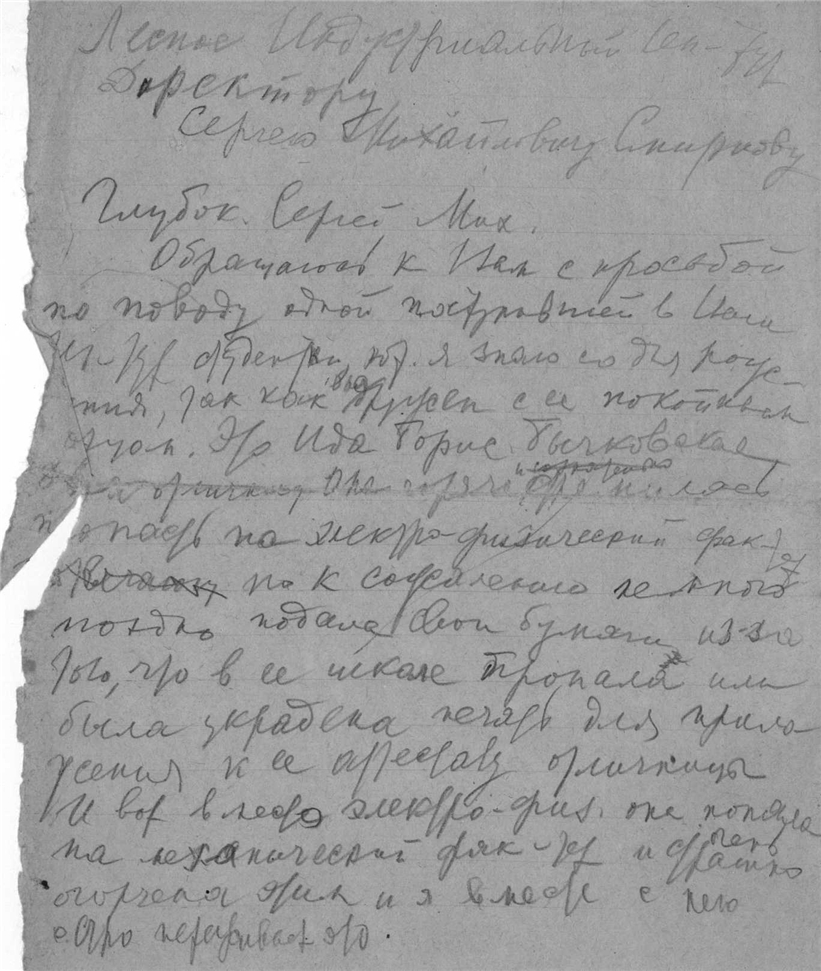 Лесное Индустриальный Ин-тут
Директору
Сергею Михайловичу Смирнову
Глубок. Сергей Мих.
Обращаюсь к Вам с просьбой
по поводу одной поступившей в Ваш
Ин-тут студентки, кот. я знаю со дня рож-
ния, так как был дружен с ее покойным
отцом. Это Ида Борис. Бычковская
отличницу Она горячо стремилась
попасть на электро-физический фак-тет
но к сожалению немного
поздно подала свои бумаги из-за
того, что в ее школе пропала или
была украдена печать для прило-
жения к ее аттестату отличницы
И вот вместо электро-физ. она попала
на механический фак-тет и очень страшно
огорчена этим и я вместе с нею
остро переживает это.